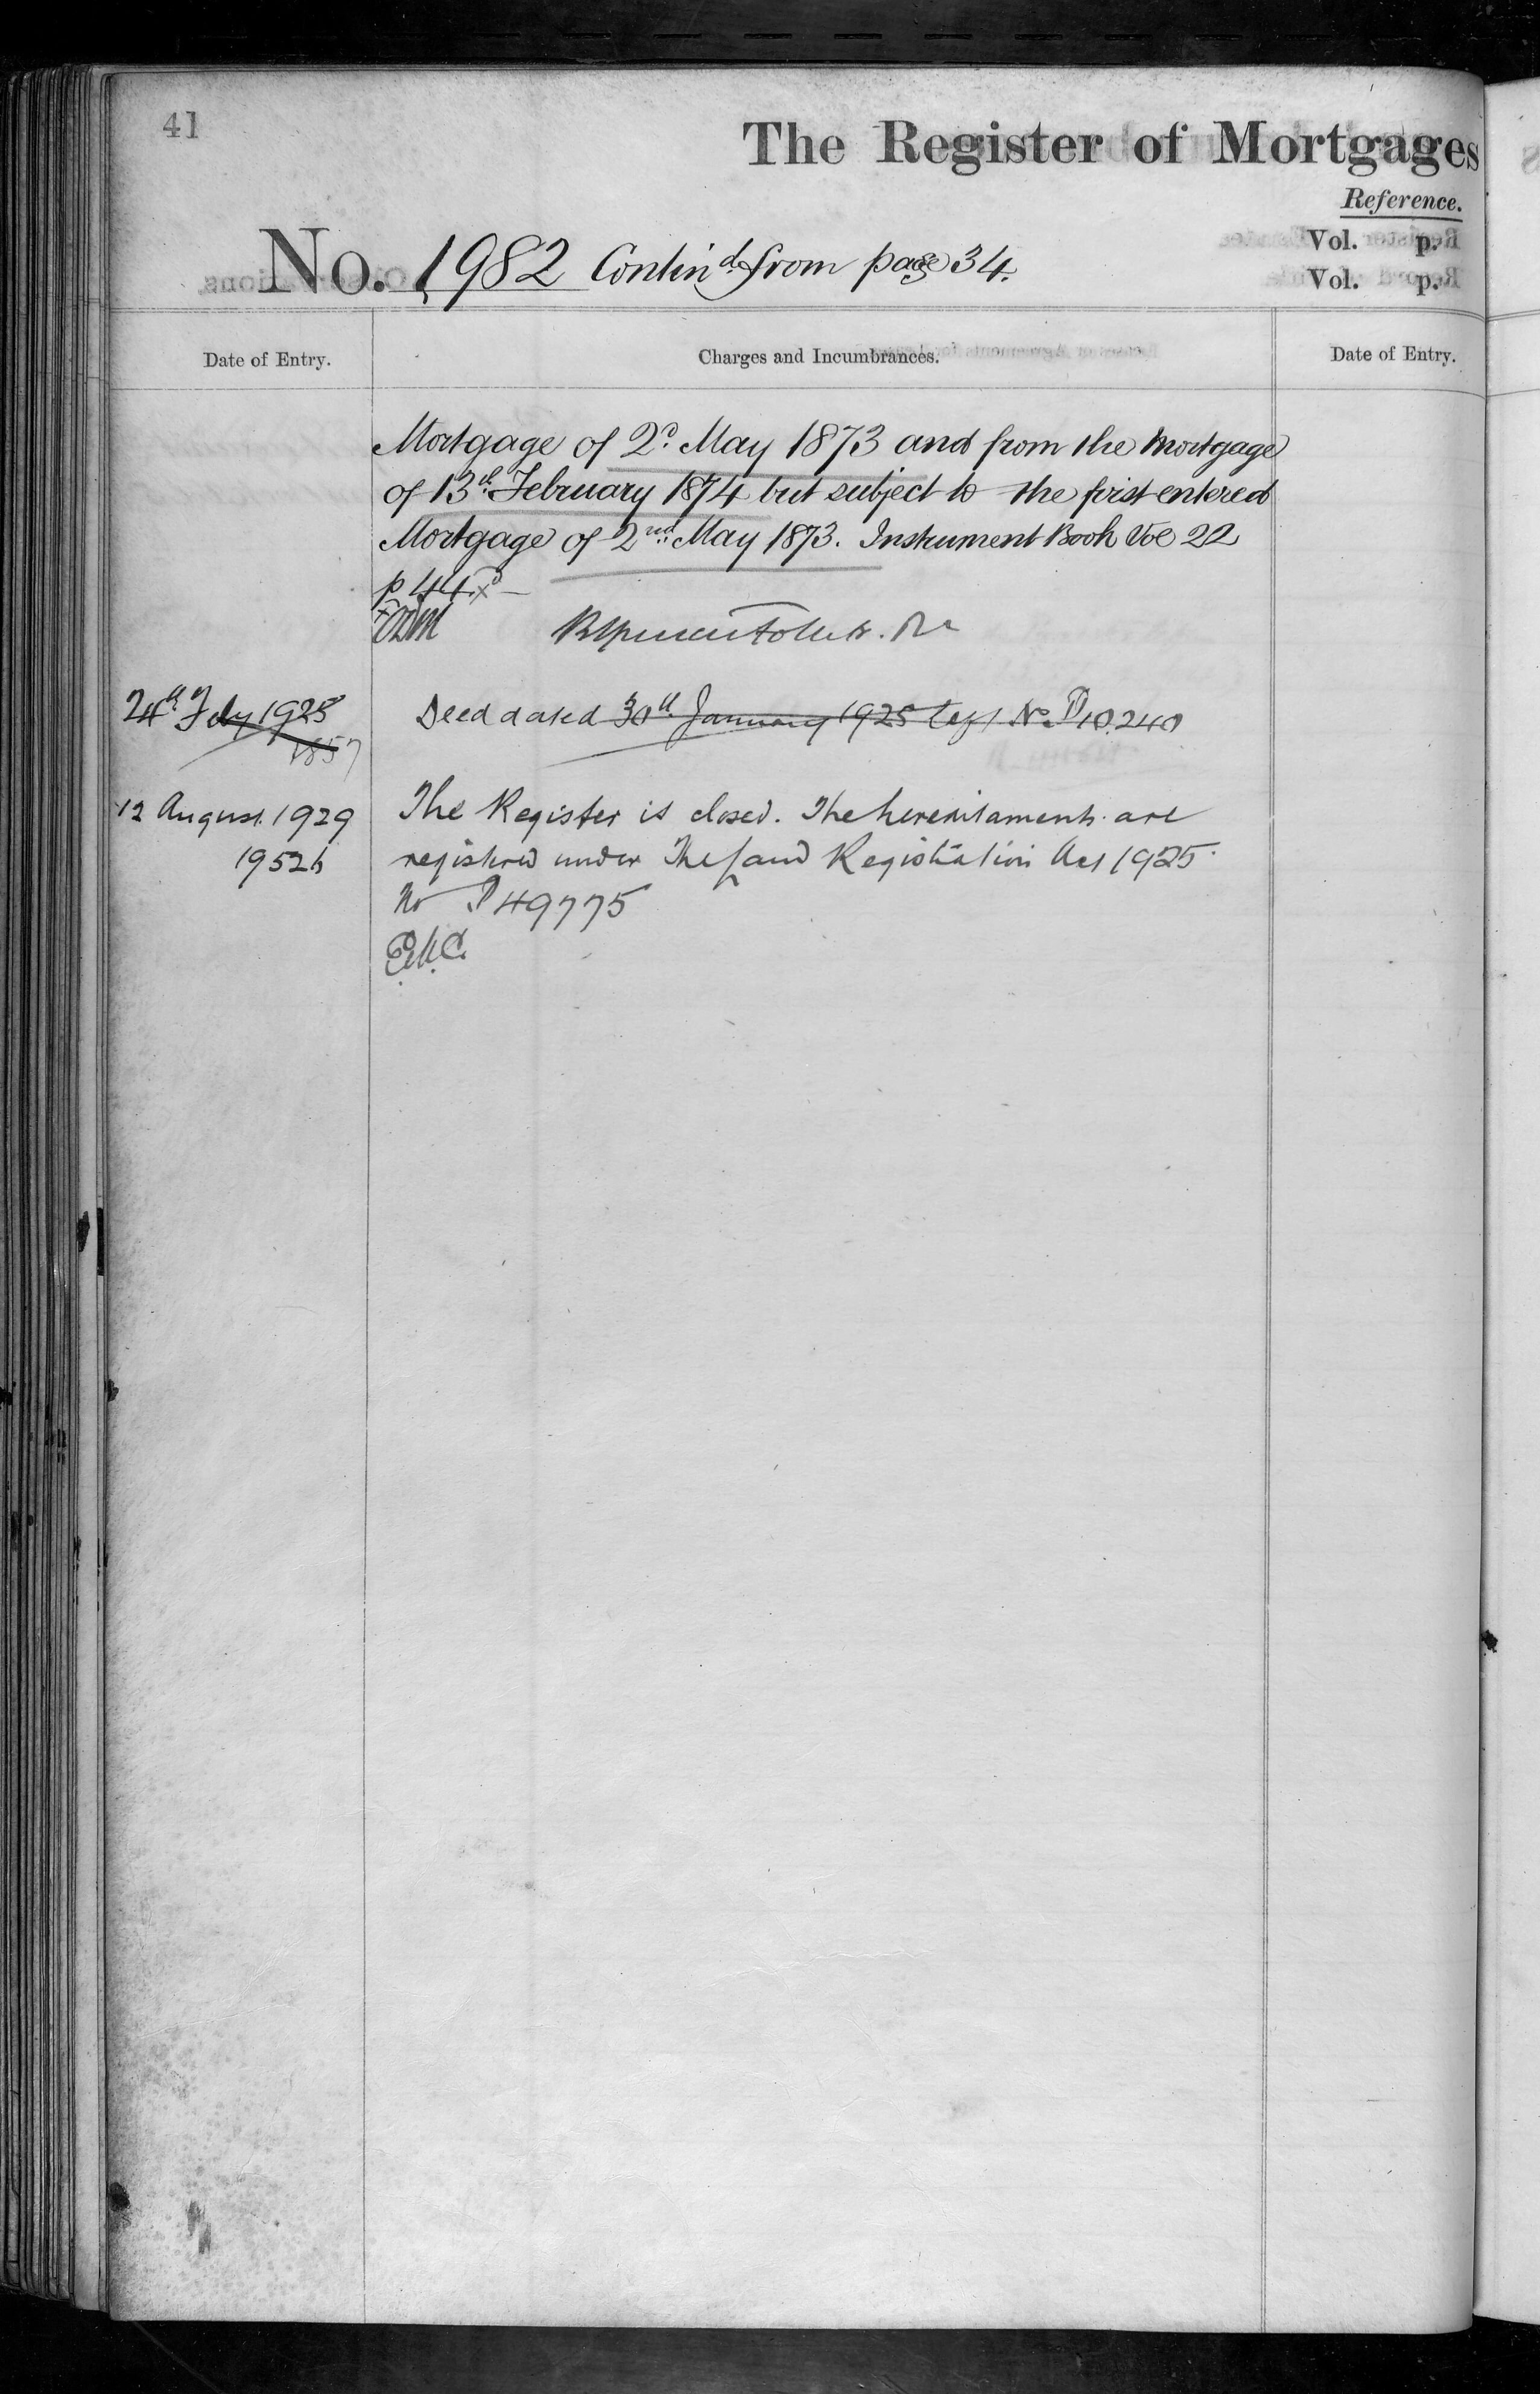 41
The Register of Mortgages
Reference.
Vol. p.
No. 1982 Contin.d from page 34.
Vol. p.
Date of Entry. Charges and Incumbrances. Date of Entry.
Mortgage of 2d May 1873 and from the Mortgage
of 13th February 1874 but subject to the first entered
Mortgage of 2nd May 1873. Instrument Book Vol 22
p 44
24th Feby 1925 Deed dated 30th January 1925 No. D10.240
1857
12 August 1929 The Register is closed. The hereditaments are
1952b registered under The Land Registration Act 1925.
No P49775